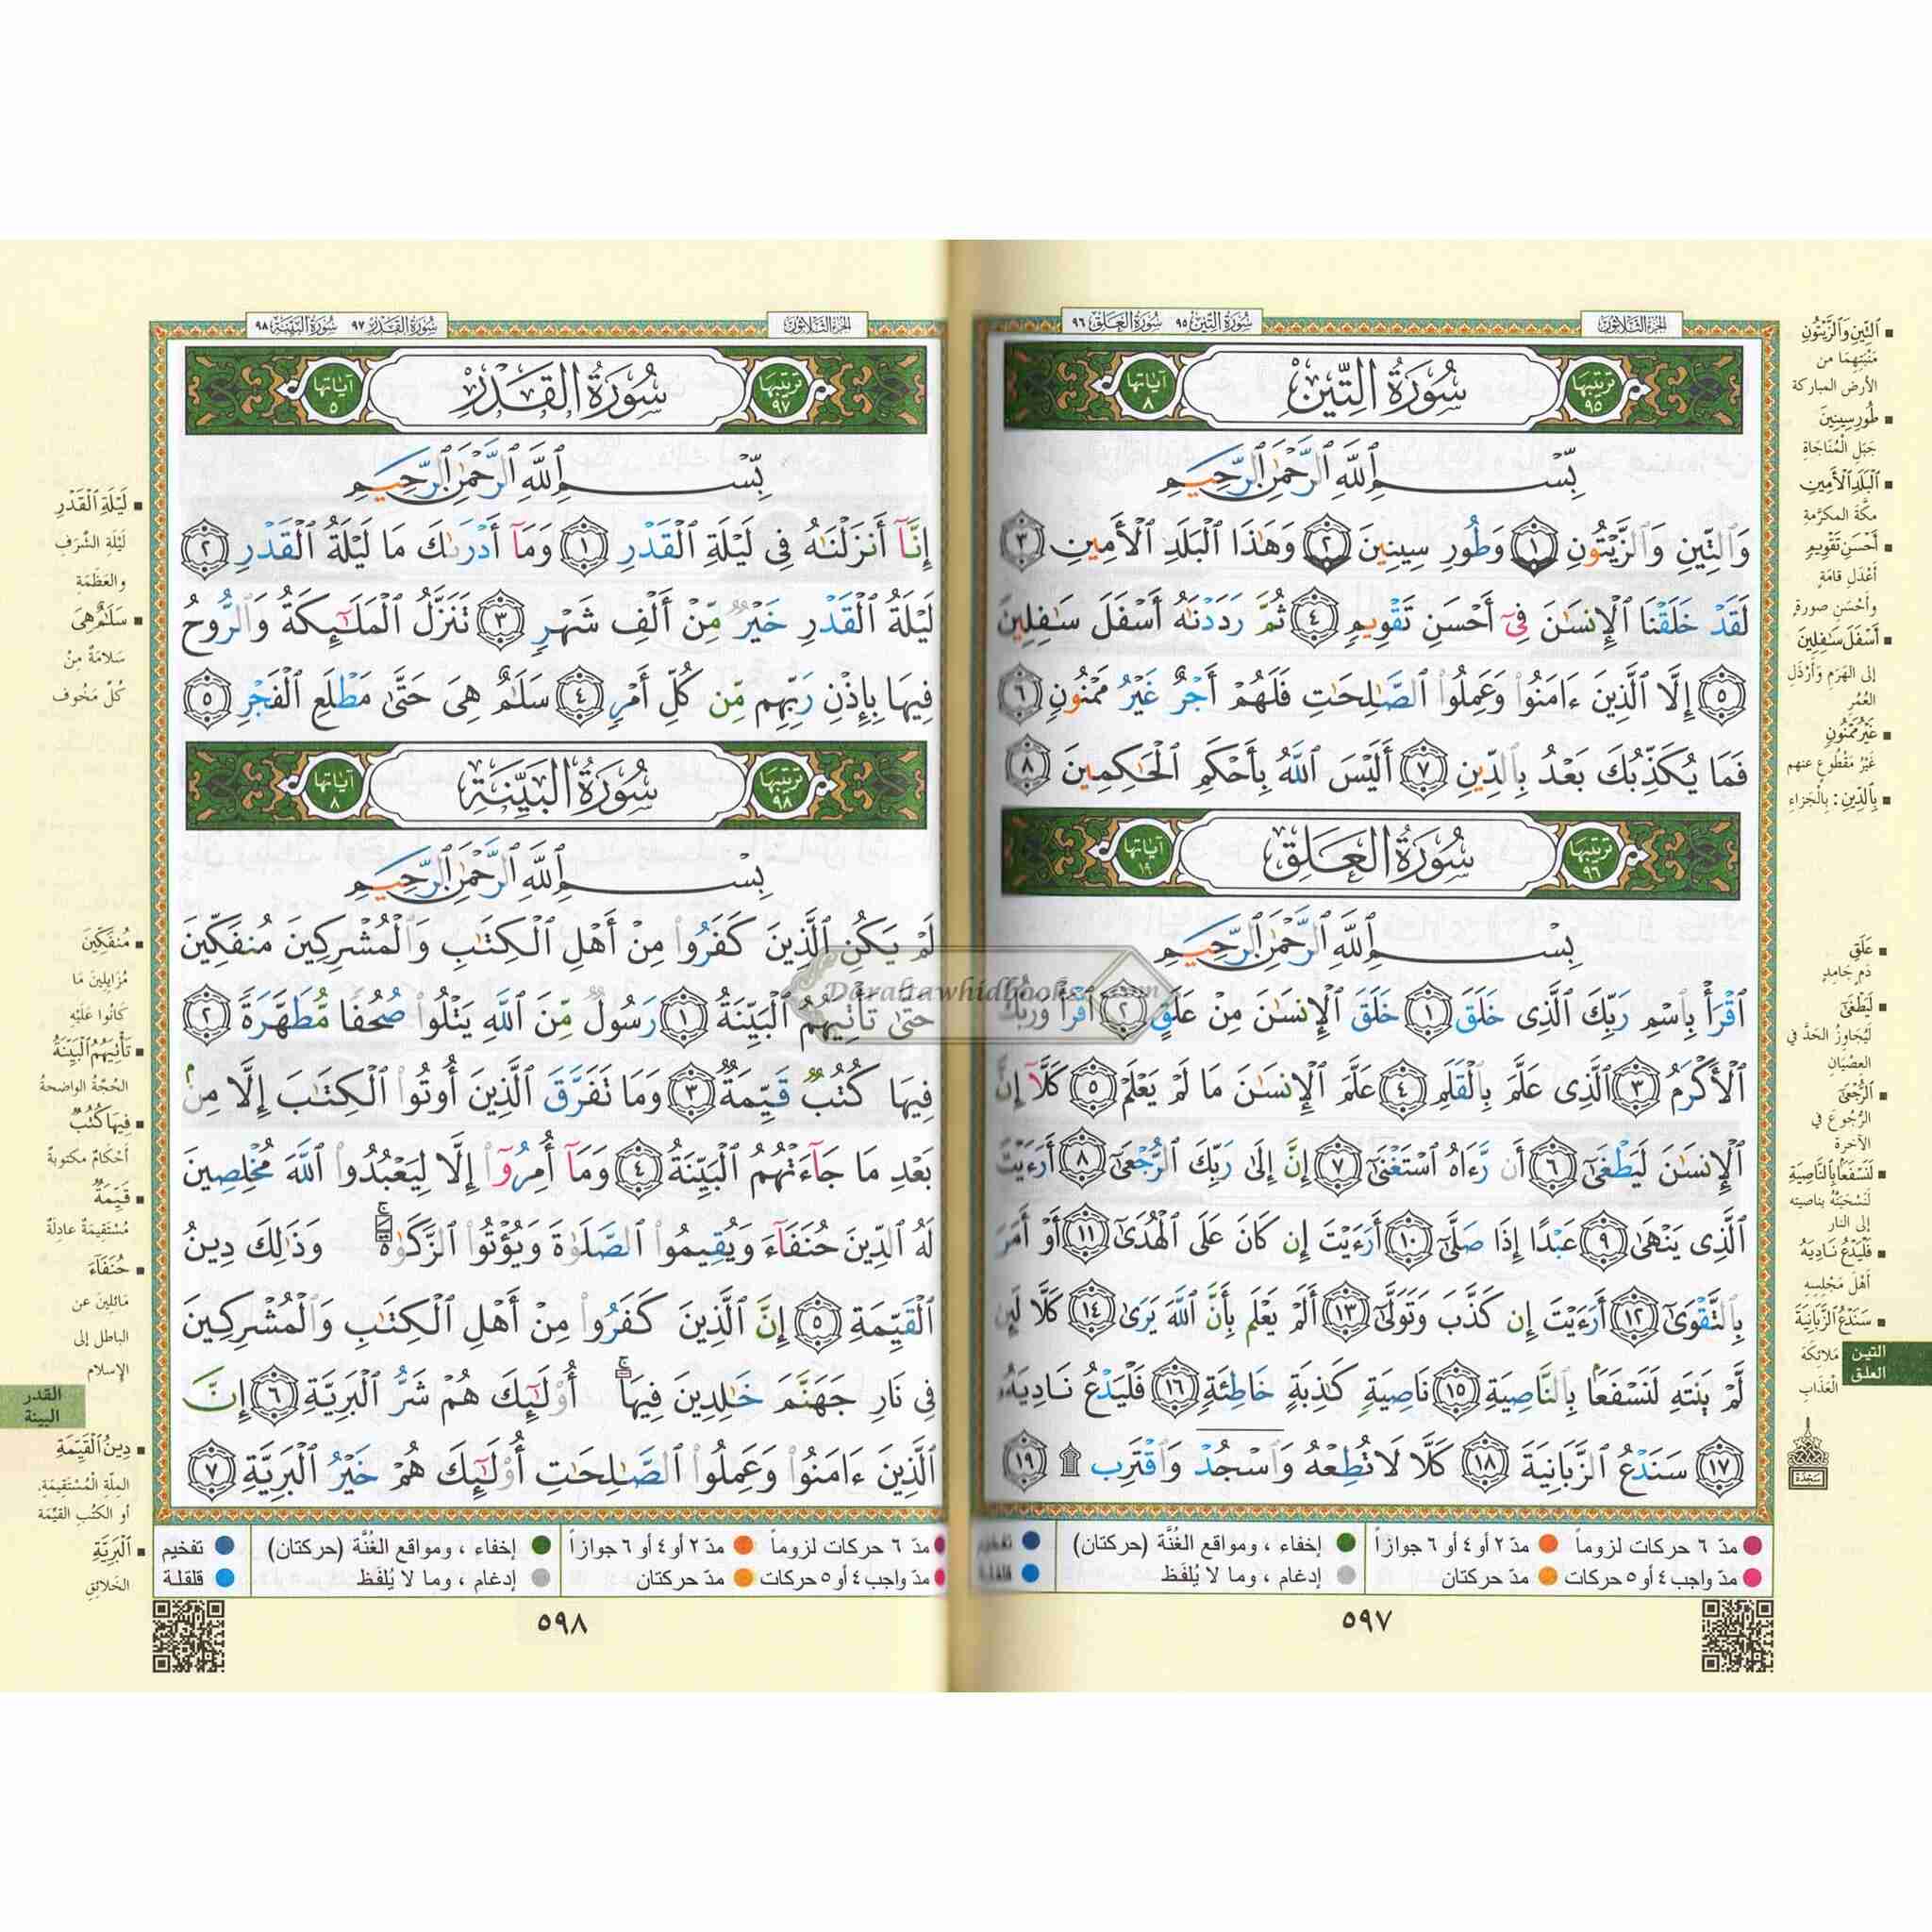 الجزء الثلاثون
سورة التين ٩٥ سورة العلق ٩٦
ترتيبها ٩٥
سُورَةُ التِّينِ
آياتها ٨
بِسْمِ ٱللَّهِ ٱلرَّحْمَٰنِ ٱلرَّحِيمِ
وَٱلتِّينِ وَٱلزَّيْتُونِ ١ وَطُورِ سِينِينَ ٢ وَهَٰذَا ٱلْبَلَدِ ٱلْأَمِينِ ٣
لَقَدْ خَلَقْنَا ٱلْإِنسَٰنَ فِىٓ أَحْسَنِ تَقْوِيمٍ ٤ ثُمَّ رَدَدْنَٰهُ أَسْفَلَ سَٰفِلِينَ
٥ إِلَّا ٱلَّذِينَ ءَامَنُوا۟ وَعَمِلُوا۟ ٱلصَّٰلِحَٰتِ فَلَهُمْ أَجْرٌ غَيْرُ مَمْنُونٍ ٦
فَمَا يُكَذِّبُكَ بَعْدُ بِٱلدِّينِ ٧ أَلَيْسَ ٱللَّهُ بِأَحْكَمِ ٱلْحَٰكِمِينَ ٨
ترتيبها ٩٦
سُورَةُ العَلَقِ
آياتها ١٩
بِسْمِ ٱللَّهِ ٱلرَّحْمَٰنِ ٱلرَّحِيمِ
ٱقْرَأْ بِٱسْمِ رَبِّكَ ٱلَّذِى خَلَقَ ١ خَلَقَ ٱلْإِنسَٰنَ مِنْ عَلَقٍ ٢ ٱقْرَأْ وَرَبُّكَ
ٱلْأَكْرَمُ ٣ ٱلَّذِى عَلَّمَ بِٱلْقَلَمِ ٤ عَلَّمَ ٱلْإِنسَٰنَ مَا لَمْ يَعْلَمْ ٥ كَلَّآ إِنَّ
ٱلْإِنسَٰنَ لَيَطْغَىٰٓ ٦ أَن رَّءَاهُ ٱسْتَغْنَىٰٓ ٧ إِنَّ إِلَىٰ رَبِّكَ ٱلرُّجْعَىٰٓ ٨ أَرَءَيْتَ
ٱلَّذِى يَنْهَىٰ ٩ عَبْدًا إِذَا صَلَّىٰٓ ١٠ أَرَءَيْتَ إِن كَانَ عَلَى ٱلْهُدَىٰٓ ١١ أَوْ أَمَرَ
بِٱلتَّقْوَىٰٓ ١٢ أَرَءَيْتَ إِن كَذَّبَ وَتَوَلَّىٰٓ ١٣ أَلَمْ يَعْلَم بِأَنَّ ٱللَّهَ يَرَىٰ ١٤ كَلَّا لَئِن
لَّمْ يَنتَهِ لَنَسْفَعًۢا بِٱلنَّاصِيَةِ ١٥ نَاصِيَةٍ كَٰذِبَةٍ خَاطِئَةٍ ١٦ فَلْيَدْعُ نَادِيَهُۥ
١٧ سَنَدْعُ ٱلزَّبَانِيَةَ ١٨ كَلَّا لَا تُطِعْهُ وَٱسْجُدْ وَٱقْتَرِب ۩ ١٩
ٱلتِّينِ وَٱلزَّيْتُونِ
مَنْبَتِهِمَا من
الأرض المباركة
طُورِ سِينِينَ
جَبَلِ الْمُنَاجَاةِ
ٱلْبَلَدِ ٱلْأَمِينِ
مكَّةَ المكرَّمةِ
أَحْسَنِ تَقْوِيمٍ
أَعْدَلِ قامَةٍ
وأَحْسَنِ صورةٍ
أَسْفَلَ سَٰفِلِينَ
إلى الهَرَمِ وَأَرْذَلِ
العُمُرِ
غَيْرُ مَمْنُونٍ
غَيْرُ مَقْطُوعٍ عنهم
بِٱلدِّينِ: بِالْجَزاءِ
عَلَقٍ
دَمٍ جَامِدٍ
لَيَطْغَىٰٓ
لَيُجَاوِزُ الحَدَّ في
العِصْيَانِ
ٱلرُّجْعَىٰٓ
الرُّجُوعَ في
الآخرة
لَنَسْفَعًۢا بِٱلنَّاصِيَةِ
لَنَسْحَبَنَّهُ بناصيته
إلى النار
فَلْيَدْعُ نَادِيَهُۥ
أَهْلَ مَجْلِسِهِ
سَنَدْعُ ٱلزَّبَانِيَةَ
مَلائِكَةَ
الْعَذَابِ
التين
العلق
سجدة
مدّ ٦ حركات لزوماً مدّ ٢ أو ٤ أو ٦ جوازاً إخفاء ، ومواقع الغُنَّة (حركتان) تفخيم
مدّ واجب ٤ أو ٥ حركات مدّ حركتان إدغام ، وما لا يُلفَظ قلقلة
٥٩٧
الجزء الثلاثون
سورة القدر ٩٧ سورة البينة ٩٨
ترتيبها ٩٧
سُورَةُ القَدْرِ
آياتها ٥
بِسْمِ ٱللَّهِ ٱلرَّحْمَٰنِ ٱلرَّحِيمِ
إِنَّآ أَنزَلْنَٰهُ فِى لَيْلَةِ ٱلْقَدْرِ ١ وَمَآ أَدْرَىٰكَ مَا لَيْلَةُ ٱلْقَدْرِ ٢
لَيْلَةُ ٱلْقَدْرِ خَيْرٌ مِّنْ أَلْفِ شَهْرٍ ٣ تَنَزَّلُ ٱلْمَلَٰٓئِكَةُ وَٱلرُّوحُ
فِيهَا بِإِذْنِ رَبِّهِم مِّن كُلِّ أَمْرٍ ٤ سَلَٰمٌ هِىَ حَتَّىٰ مَطْلَعِ ٱلْفَجْرِ ٥
ترتيبها ٩٨
سُورَةُ البَيِّنَةِ
آياتها ٨
بِسْمِ ٱللَّهِ ٱلرَّحْمَٰنِ ٱلرَّحِيمِ
لَمْ يَكُنِ ٱلَّذِينَ كَفَرُوا۟ مِنْ أَهْلِ ٱلْكِتَٰبِ وَٱلْمُشْرِكِينَ مُنفَكِّينَ
حَتَّىٰ تَأْتِيَهُمُ ٱلْبَيِّنَةُ ١ رَسُولٌ مِّنَ ٱللَّهِ يَتْلُوا۟ صُحُفًا مُّطَهَّرَةً ٢
فِيهَا كُتُبٌ قَيِّمَةٌ ٣ وَمَا تَفَرَّقَ ٱلَّذِينَ أُوتُوا۟ ٱلْكِتَٰبَ إِلَّا مِنۢ
بَعْدِ مَا جَآءَتْهُمُ ٱلْبَيِّنَةُ ٤ وَمَآ أُمِرُوٓا۟ إِلَّا لِيَعْبُدُوا۟ ٱللَّهَ مُخْلِصِينَ
لَهُ ٱلدِّينَ حُنَفَآءَ وَيُقِيمُوا۟ ٱلصَّلَوٰةَ وَيُؤْتُوا۟ ٱلزَّكَوٰةَ ۚ وَذَٰلِكَ دِينُ
ٱلْقَيِّمَةِ ٥ إِنَّ ٱلَّذِينَ كَفَرُوا۟ مِنْ أَهْلِ ٱلْكِتَٰبِ وَٱلْمُشْرِكِينَ
فِى نَارِ جَهَنَّمَ خَٰلِدِينَ فِيهَآ ۚ أُو۟لَٰٓئِكَ هُمْ شَرُّ ٱلْبَرِيَّةِ ٦ إِنَّ
ٱلَّذِينَ ءَامَنُوا۟ وَعَمِلُوا۟ ٱلصَّٰلِحَٰتِ أُو۟لَٰٓئِكَ هُمْ خَيْرُ ٱلْبَرِيَّةِ ٧
لَيْلَةِ ٱلْقَدْرِ
لَيْلَةِ الشَّرَفِ
والعَظَمَةِ
سَلَٰمٌ هِىَ
سَلامَةٌ مِنْ
كُلِّ مَخُوف
مُنفَكِّينَ
مُزَايِلِينَ مَا
كَانُوا عَلَيْهِ
تَأْتِيَهُمُ ٱلْبَيِّنَةُ
الحُجَّةُ الواضحةُ
فِيهَا كُتُبٌ
أَحْكَامٌ مكتوبةٌ
قَيِّمَةٌ
مُسْتَقِيمَةٌ عادلةٌ
حُنَفَآءَ
مَائِلِينَ عن
الباطل إلى
الإسلام
القدر
البينة
دِينُ ٱلْقَيِّمَةِ
المِلّةِ الْمُسْتَقِيمَةِ.
أو الكتُبِ القَيِّمَة
ٱلْبَرِيَّةِ
الخَلائِقِ
مدّ ٦ حركات لزوماً مدّ ٢ أو ٤ أو ٦ جوازاً إخفاء ، ومواقع الغُنَّة (حركتان) تفخيم
مدّ واجب ٤ أو ٥ حركات مدّ حركتان إدغام ، وما لا يُلفَظ قلقلة
٥٩٨
Daraltawhidbooks.com